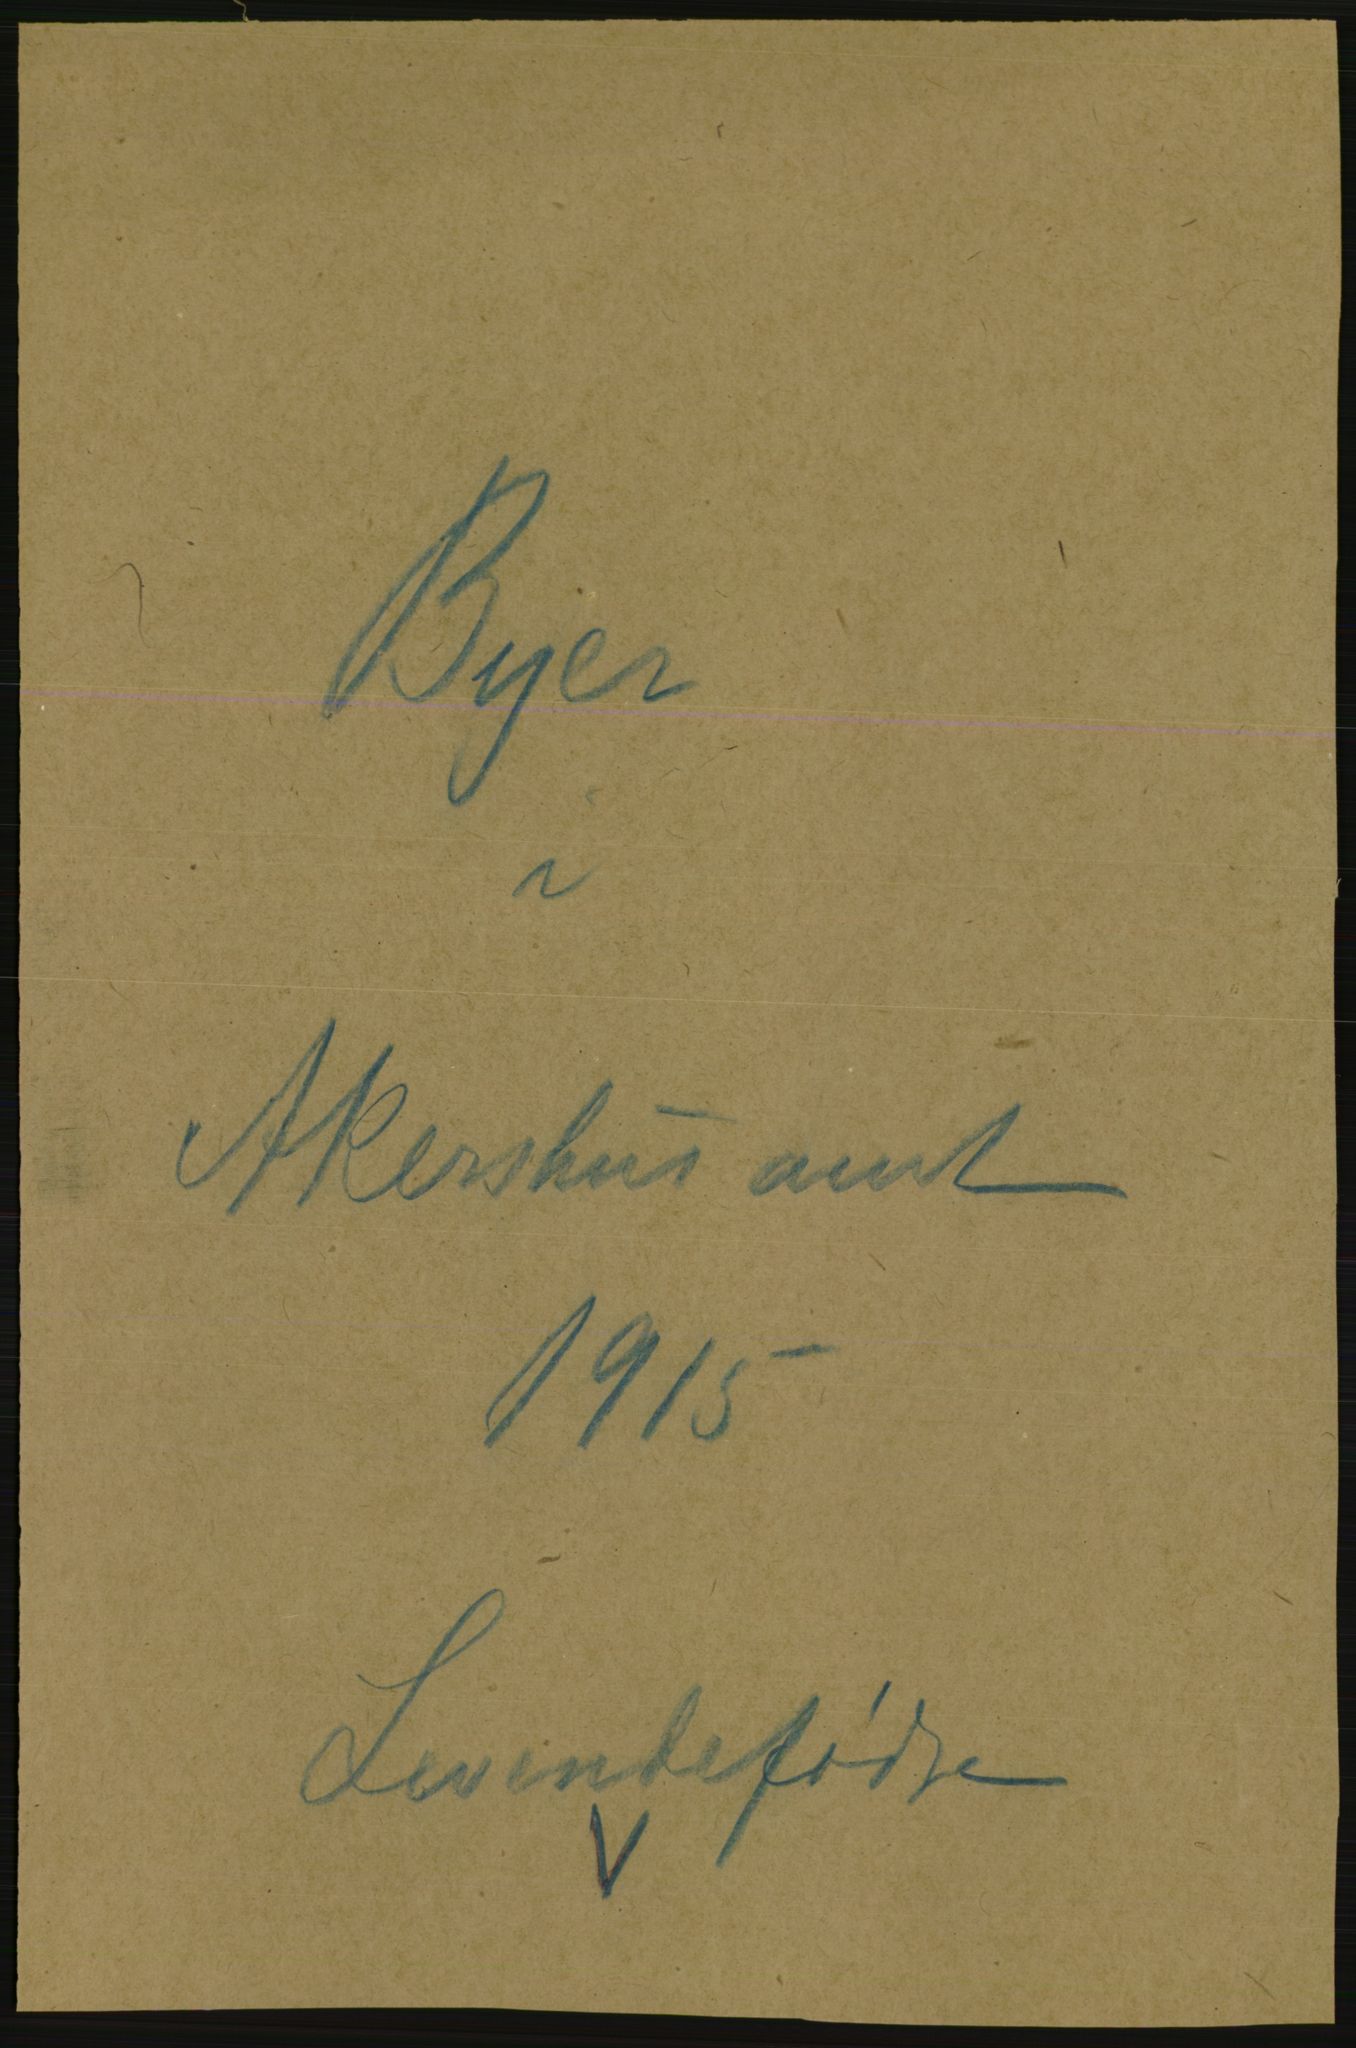 Byer
i
Akershus amt
1915
Levendefødte
V